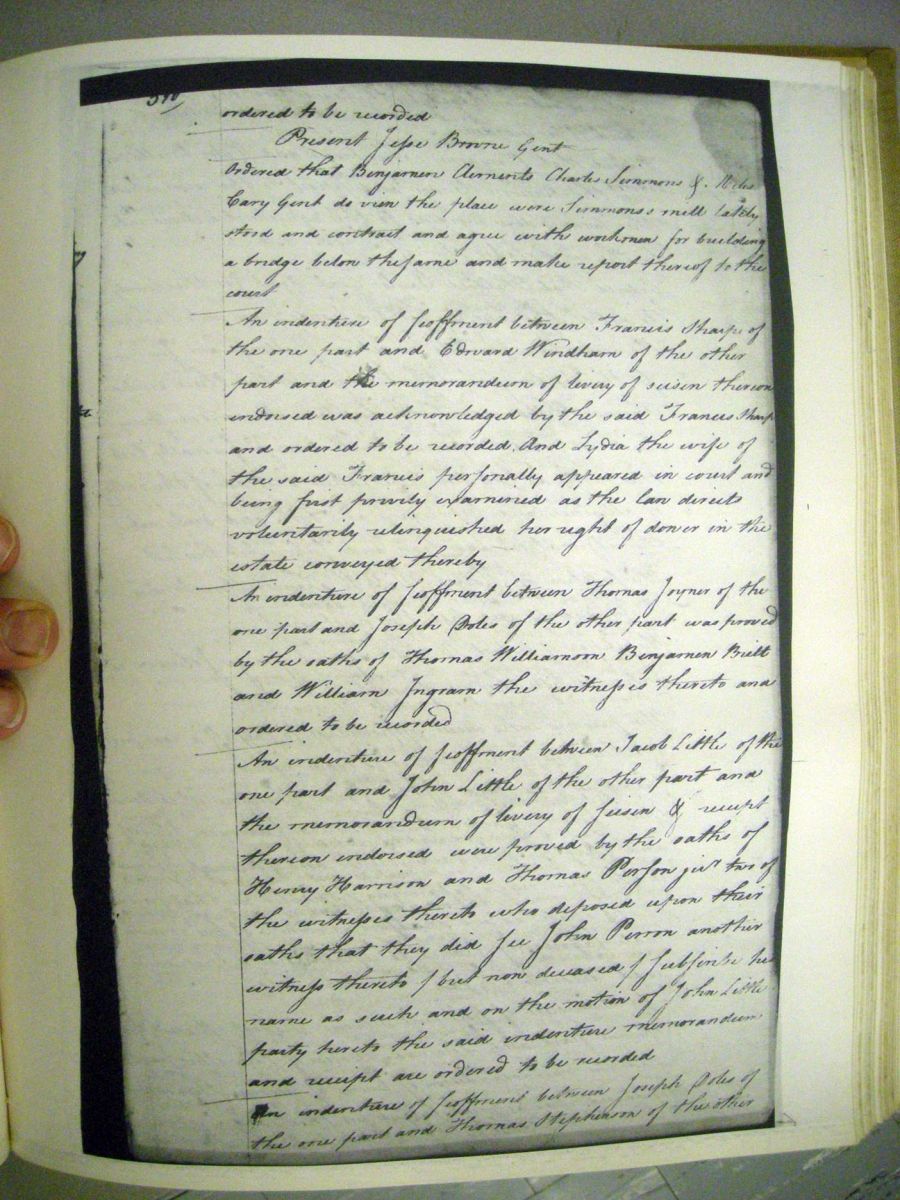 ordered to be recorded
Present Jesse Browne Gent
Ordered that Benjamen Clements Charles Simmons &. Miles
Cary Gent do view the place were Simmons s mill lately
stood and contract and agree with workmen for building
a bridge below the same and make report thereof to the
court
An indenture of feoffment between Francis Sharp of
the one part and Edward Windham of the other
part and the memorandum of livery of seisen thereon
indorsed was acknowledged by the said Francis Sharp
and ordered to be recorded. And Lydia the wife of
the said Francis personally appeared in court and
being first privily examined as the law directs
voluntarily relinquished her right of dower in the
estate conveyed thereby
An indenture of feoffment between Thomas Joyner of the
one part and Joseph Doles of the other part was proved
by the oaths of Thomas Williamson Benjamen Britt
and William Ingram the witnesses thereto and
ordered to be recorded
An indenture of feoffment between Jacob Little of the
one part and John Little of the other part and
the memorandum of livery of seisen & receipt
thereon indorsed were proved by the oaths of
Henry Harrison and Thomas Person jur two of
the witnesses thereto who deposed upon their
oaths that they did see John Person another
witness thereto / but now deceased / subscribe his
name as such and on the motion of John Little
party hereto the said indenture memorandum
and receipt are ordered to be recorded
An indenture of feoffment between Joseph Doles of
the one part and Thomas Stephenson of the other